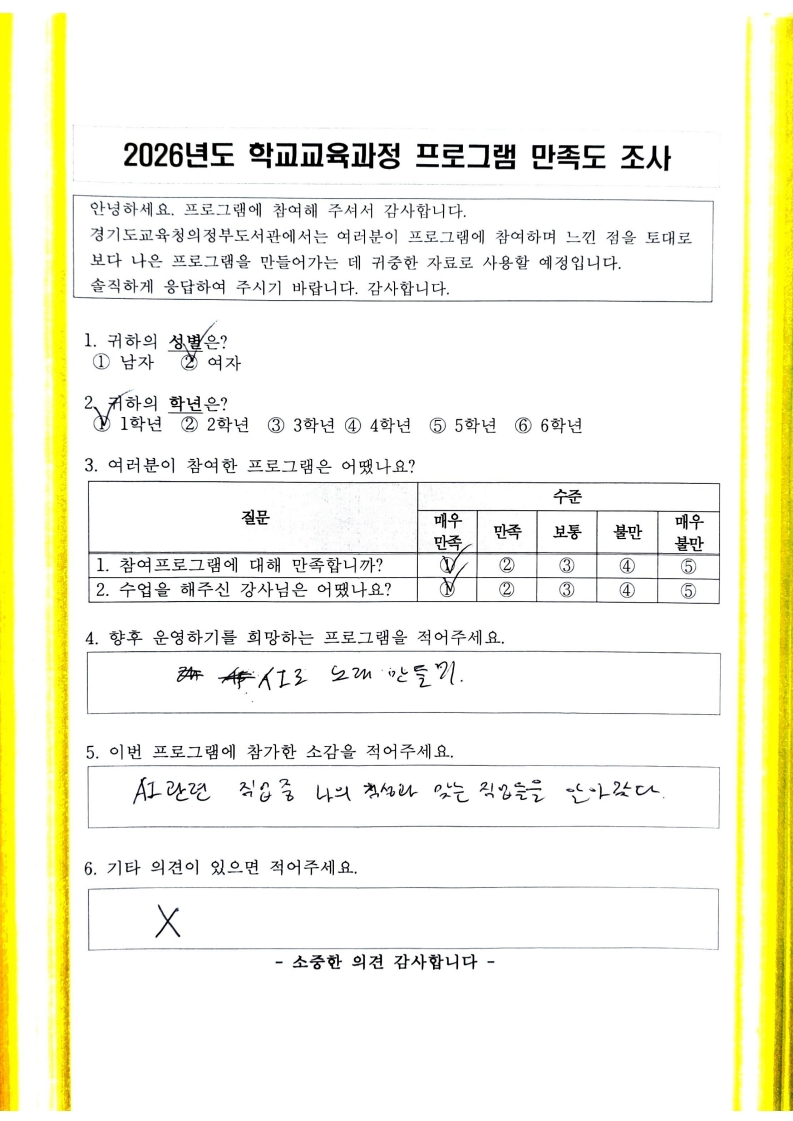 2026년도 학교교육과정 프로그램 만족도 조사
안녕하세요. 프로그램에 참여해 주셔서 감사합니다.
경기도교육청의정부도서관에서는 여러분이 프로그램에 참여하며 느낀 점을 토대로
보다 나은 프로그램을 만들어가는 데 귀중한 자료로 사용할 예정입니다.
솔직하게 응답하여 주시기 바랍니다. 감사합니다.
1. 귀하의 성별은?
① 남자 ② 여자
2. 귀하의 학년은?
① 1학년 ② 2학년 ③ 3학년 ④ 4학년 ⑤ 5학년 ⑥ 6학년
3. 여러분이 참여한 프로그램은 어땠나요?
질문 수준
매우 만족 만족 보통 불만 매우 불만
1. 참여프로그램에 대해 만족합니까? ① ② ③ ④ ⑤
2. 수업을 해주신 강사님은 어땠나요? ① ② ③ ④ ⑤
4. 향후 운영하기를 희망하는 프로그램을 적어주세요.
AI로 노래 만들기.
5. 이번 프로그램에 참가한 소감을 적어주세요.
AI관련 직업중 나의 적성과 맞는 직업들을 알아갔다.
6. 기타 의견이 있으면 적어주세요.
X
- 소중한 의견 감사합니다 -